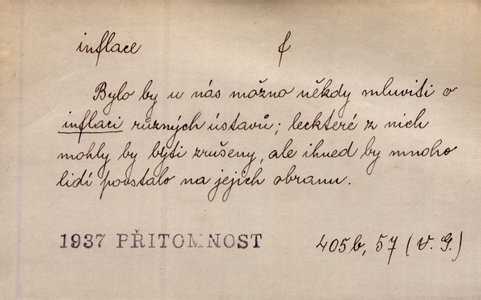 inflace f
Bylo by u nás možno někdy mluviti o
inflaci různých ústavů; leckteré z nich
mohly by býti zrušeny, ale ihned by mnoho
lidí povstalo na jejich obranu.
1937 PŘITOMNOST 405b, 57 (V. G.)